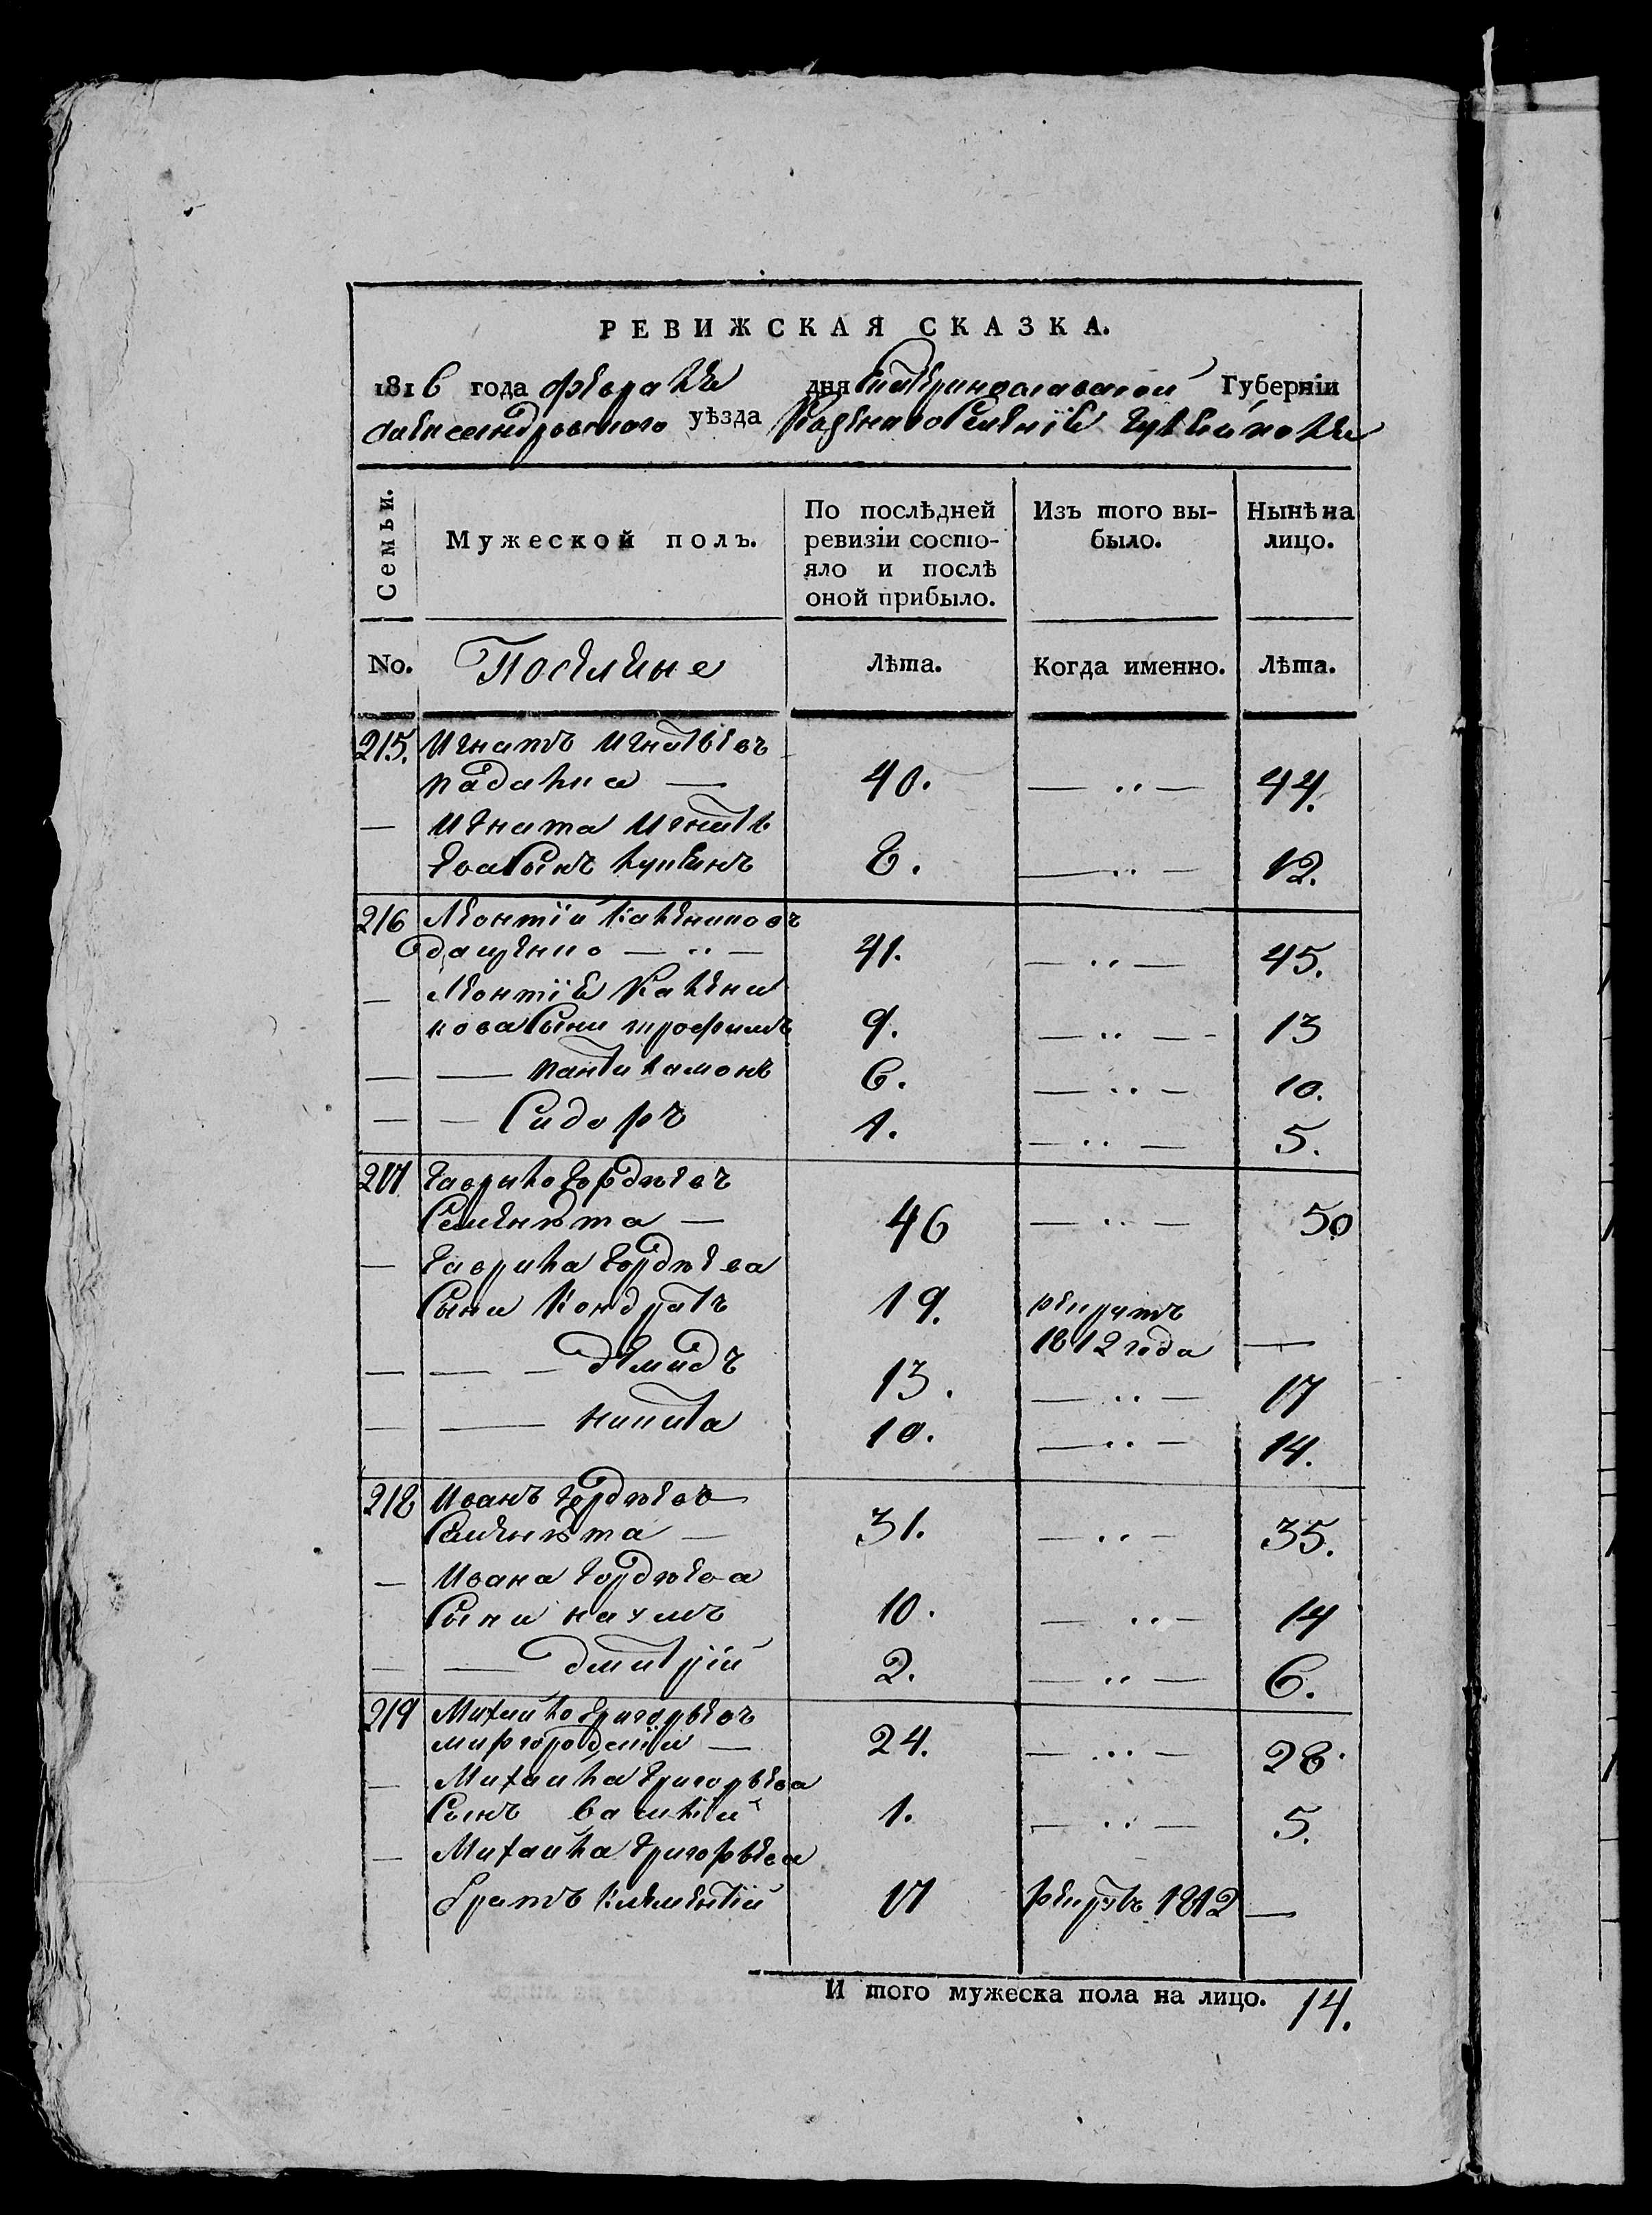 РЕВИЖСКАЯ СКАЗКА.
1816 года февраля дня Екатеринославской Губерніи
Александровскаго уѣзда Казеннаго Селенія Гуляйполя
Семьи.
Мужеской полъ.
По послѣдней ревизіи состо-
яло и послѣ
оной прибыло.
Изъ того вы-
было.
Нынѣ на
лицо.
No. Поселяне Лѣта. Когда именно. Лѣта.
215. Игнатъ Игнатьевъ
40. — ·· — 44.
— Игната Игнатъ
ева Сынъ 8. — ·· — 12.
216 Леонтій Калениковъ
41. — ·· — 45.
— Леонтія Калени
кова Сыни трофимъ 9. — ·· — 13
— — пантилимонъ 6. — ·· — 10.
— — Сидоръ 1. — ·· — 5.
217 Гаврило Гордѣевъ
Семенѣта — 46 — ·· — 50
— Гаврила Гордѣева
Сыни Кондратъ 19. рекрутъ
1812 года —
— — — демидъ 13. — ·· — 17
— — никита 10. — ·· — 14.
218 Иванъ Гордѣевъ
Семенѣта — 31. — ·· — 35.
— Ивана Гордѣева
Сыни наумъ 10. — ·· — 14
— — дмитрій 2. — ·· — 6.
219 Михайло Григорьевъ
миргородскій — 24. — ·· — 28.
— Михайла Григорьева
Сынъ Василій 1. — ·· — 5.
— Михайла Григорьева
братъ Климентій 17 рекрутъ 1812 —
И того мужеска пола на лицо. 14.